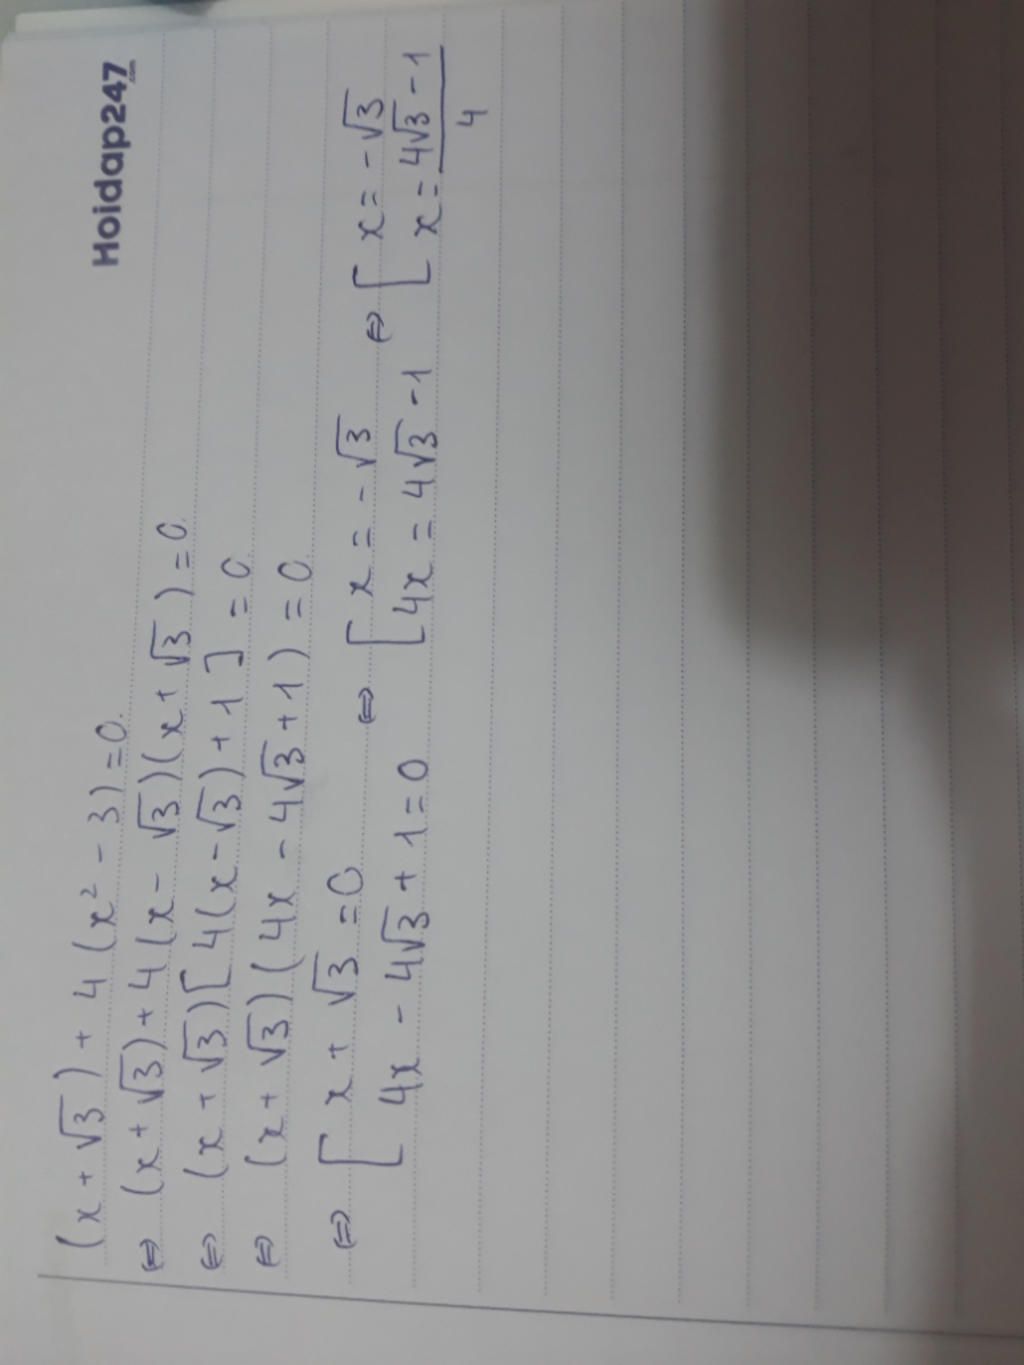 Hoidap247
.com
(x + √3) + 4 (x² - 3) = 0
⇔ (x + √3) + 4 (x - √3) (x + √3) = 0
⇔ (x + √3) [ 4 (x - √3) + 1 ] = 0
⇔ (x + √3) ( 4x - 4√3 + 1) = 0
⇔ [ x + √3 = 0 ⇔ [ x = - √3 ⇔ [ x = - √3
[ 4x - 4√3 + 1 = 0 [ 4x = 4√3 - 1 [ x = 4√3 - 1
4